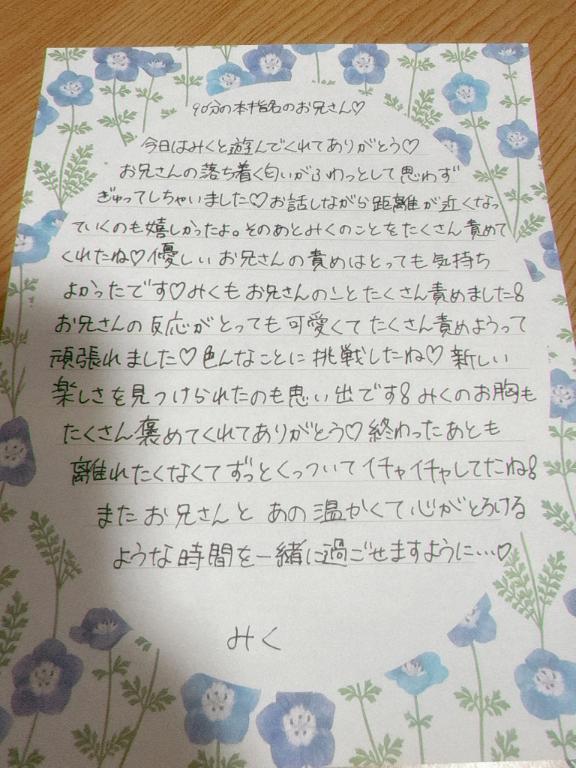 90分の本指名のお兄さん♡
今日はみくと遊んでくれてありがとう♡
お兄さんの落ち着く匂いがふわっとして思わず
ぎゅってしちゃいました♡お話しながら距離が近くなっ
ていくのも嬉しかったよ。そのあとみくのことをたくさん責めて
くれたね♡優しいお兄さんの責めはとっても気持ち
よかったです♡みくもお兄さんのことたくさん責めました
お兄さんの反応がとっても可愛くてたくさん責めようって
頑張れました♡色んなことに挑戦したね♡新しい
楽しさを見つけられたのも思い出です みくのお胸も
たくさん褒めてくれてありがとう♡終わったあとも
離れたくなくてずっとくっついてイチャイチャしてたね
またお兄さんとあの温かくて心がとろける
ような時間を一緒に過ごせますように…♡
みく